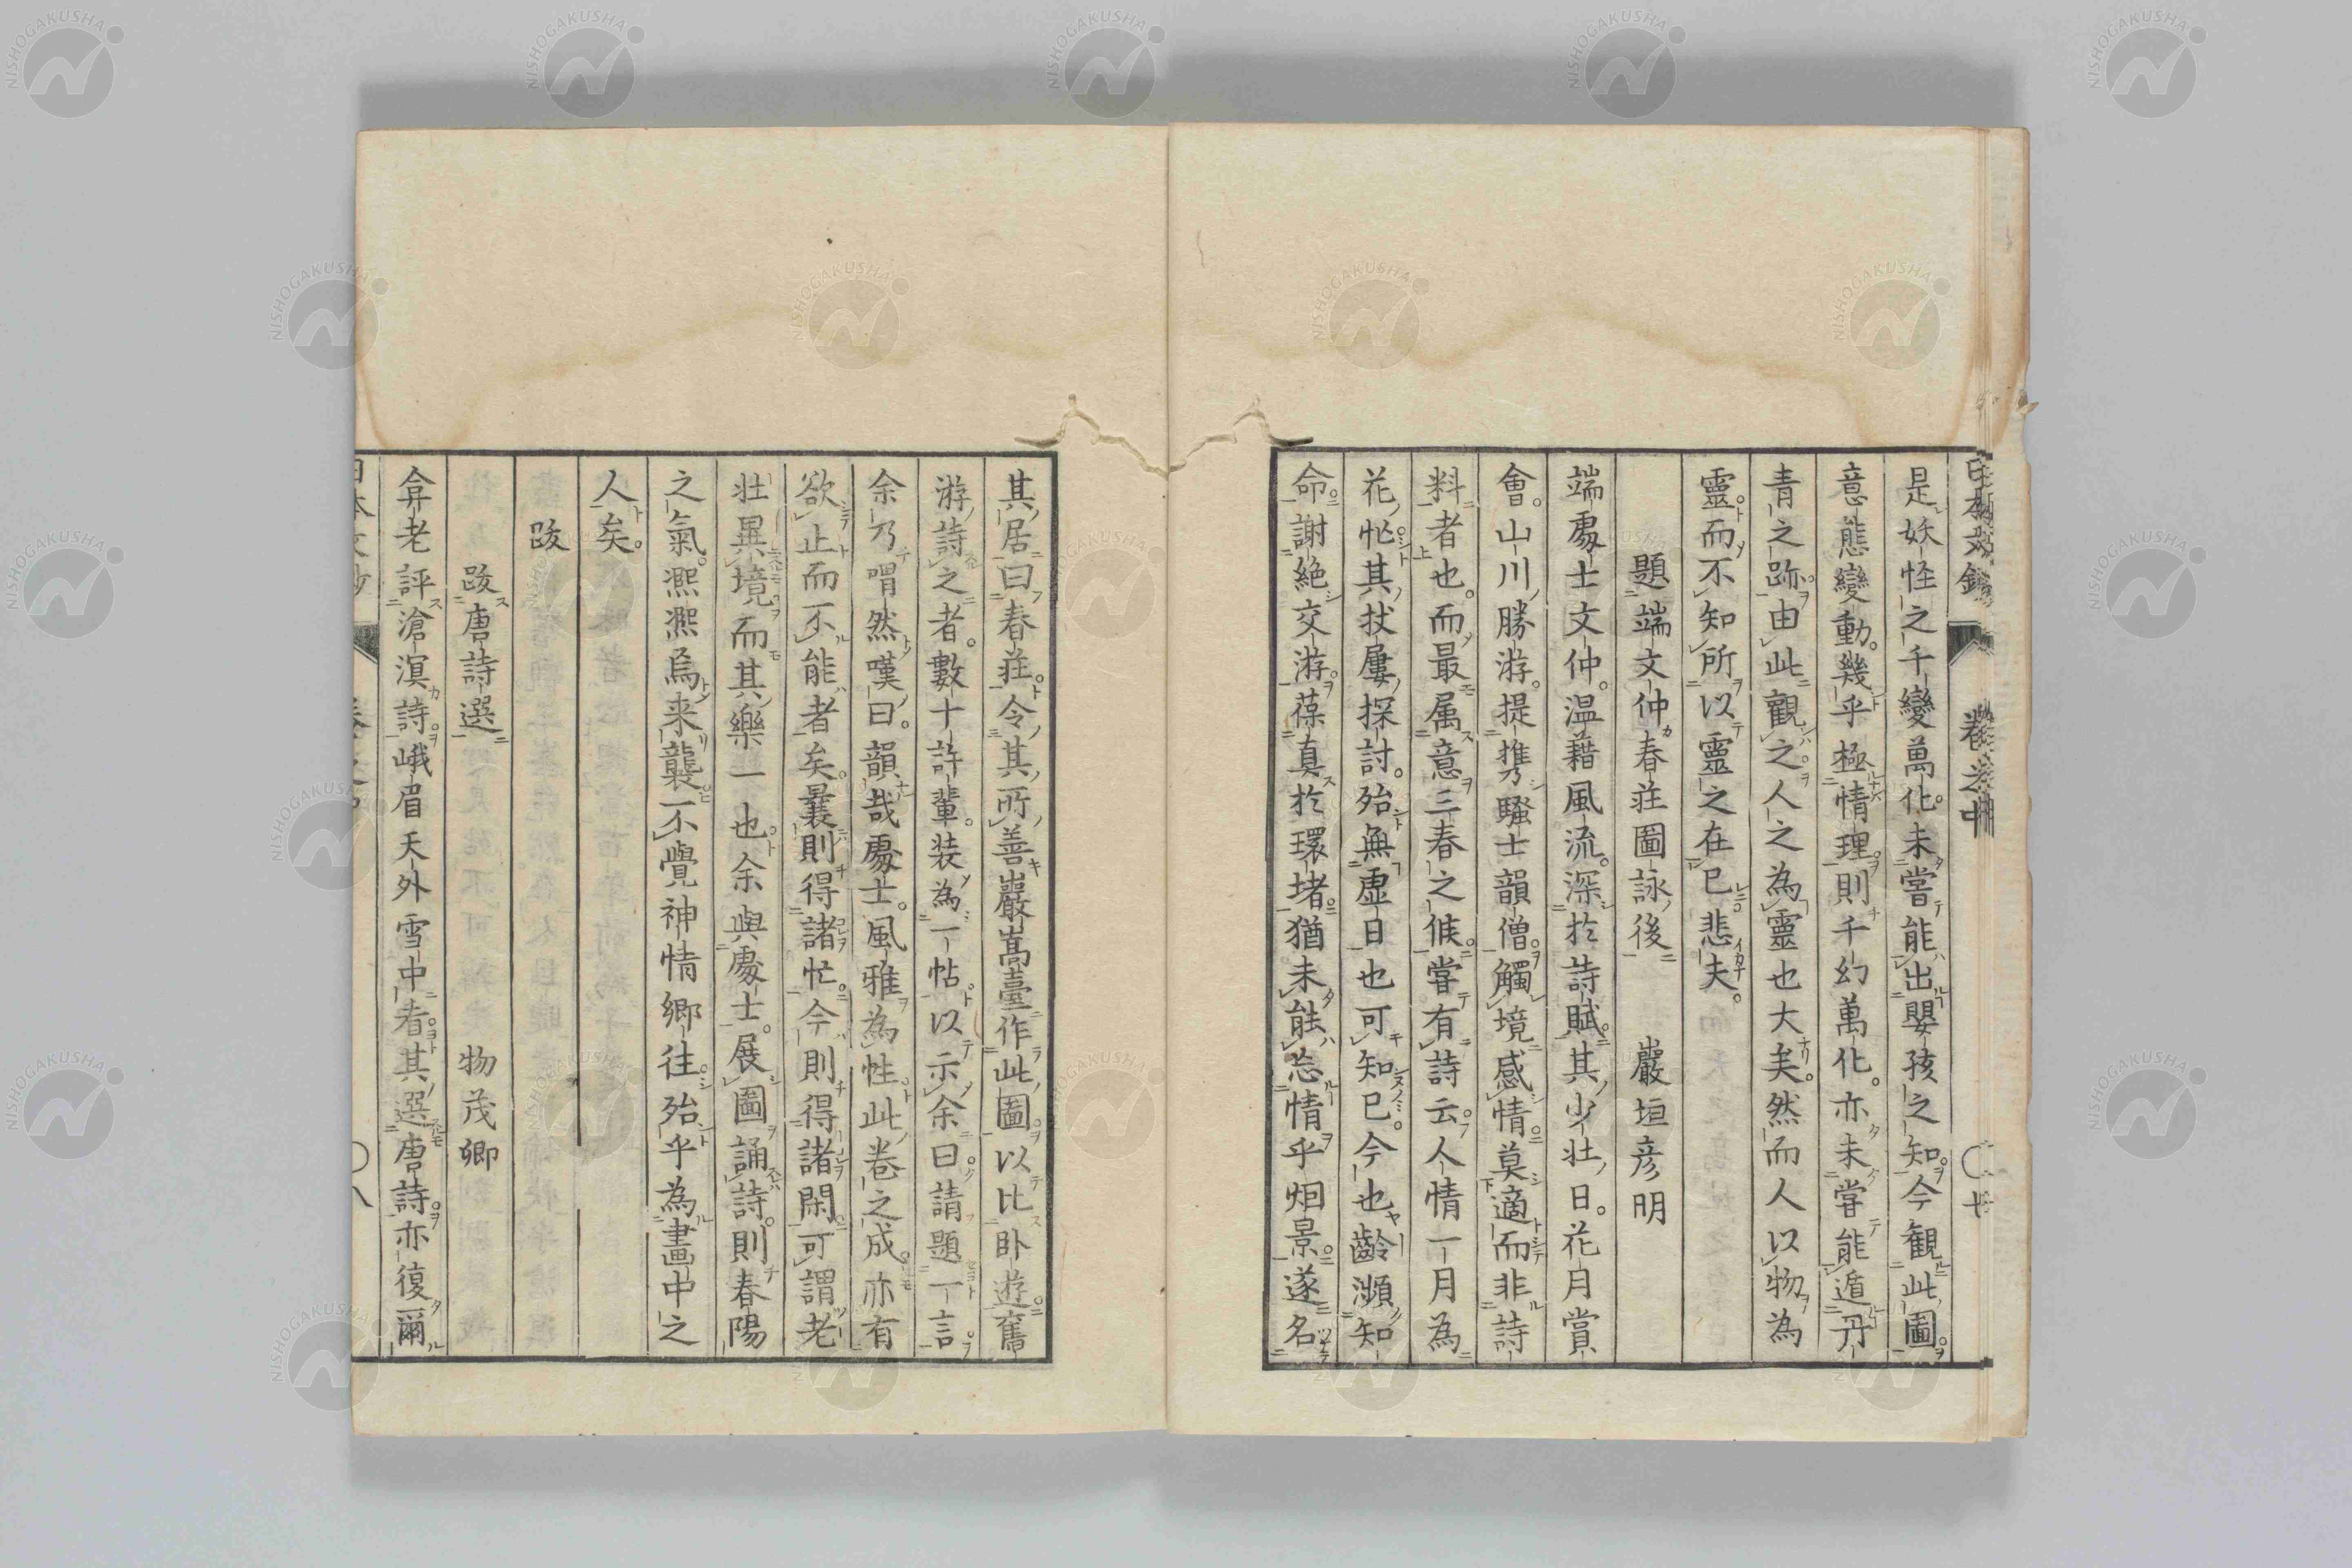 是妖怪之千變萬化。未嘗能出嬰孩之知。今觀此圖。
意態變動。幾乎極情理。則千幻萬化。亦未嘗能遁丹
青之跡。由此觀之。人之為靈也大矣。然而人以物為
靈。而不知所以靈之在已。悲夫。
題端文仲春荘圖詠後 巖垣彦明
端處士文仲。温藉風流。深於詩賦。其少壮日。花月賞
會。山川勝游。提携騷士韻僧。觸境感情。莫適而非詩
料者也。而最属意三春之候。嘗有詩云。人情一月為
花忙。其杖屨探討。殆無虚日也可知已。今也齡瀕知
命。謝絶交游。葆真於環堵。猶未能忘情乎烟景。遂名
其居曰春荘。令其所善巖嵩臺作此圖。以比卧遊。舊
游詩之者。數十許輩。装為一帖。以示余曰。請題一言。
余乃喟然嘆曰。韻哉處士。風雅為性。此卷之成。亦有
欲止而不能者矣。曩則得諸忙。今則得諸閑。可謂老
壮異境而其樂一也。余與處士。展圖誦詩。則春陽
之氣。熈熈焉来襲。不覺神情郷往。殆乎為畫中之
人矣。
跋
跋唐詩選 物茂卿
弇老評滄溟詩。峨眉天外雪中看。其選唐詩。亦復爾
卷之中